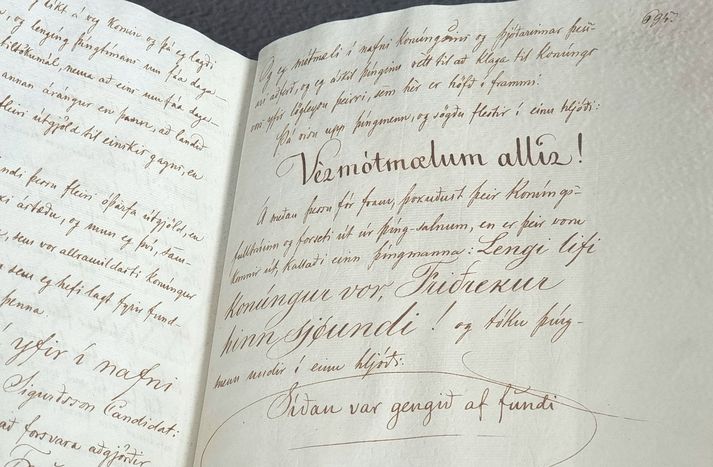 líkt á veg komin og þá eg lagði
og lenging þingtímans um fáa daga
tilkostnaði, nema að eins um fáa daga
annan árángur en þann, að landið
fleiri útgjöld til einskis gagns, en
þessu fleiri óþarfa útgjöld, en
ástæðu, og mun eg því, sam-
sem vor allramildasti konúngur
sem eg hefi lagt fyrir fund-
þenna.
yfir í nafni
Sigurðsson Candidat:
að forsvara aðgjörðir
695.
Og eg mótmæli í nafni konúngsins og þjóðarinnar þess-
ari aðferð, og eg áskil þinginu rétt til að klaga til konúngs
vors yfir lögleysu þeirri, sem hér er höfð í frammi.
Þá risu upp þingmenn, og sögðu flestir í einu hljóði:
Vér mótmælum allir!
Á meðan þessu fór fram, þokuðust þeir konúngs-
fulltrúinn og forseti út úr þíng-salnum, en er þeir voru
komnir út, kallaði einn þíngmanna: Lengi lifi
konúngur vor, Friðrekur
hinn sjöundi! og tóku þing-
menn undir í einu hljóði.
Síðan var gengið af fundi